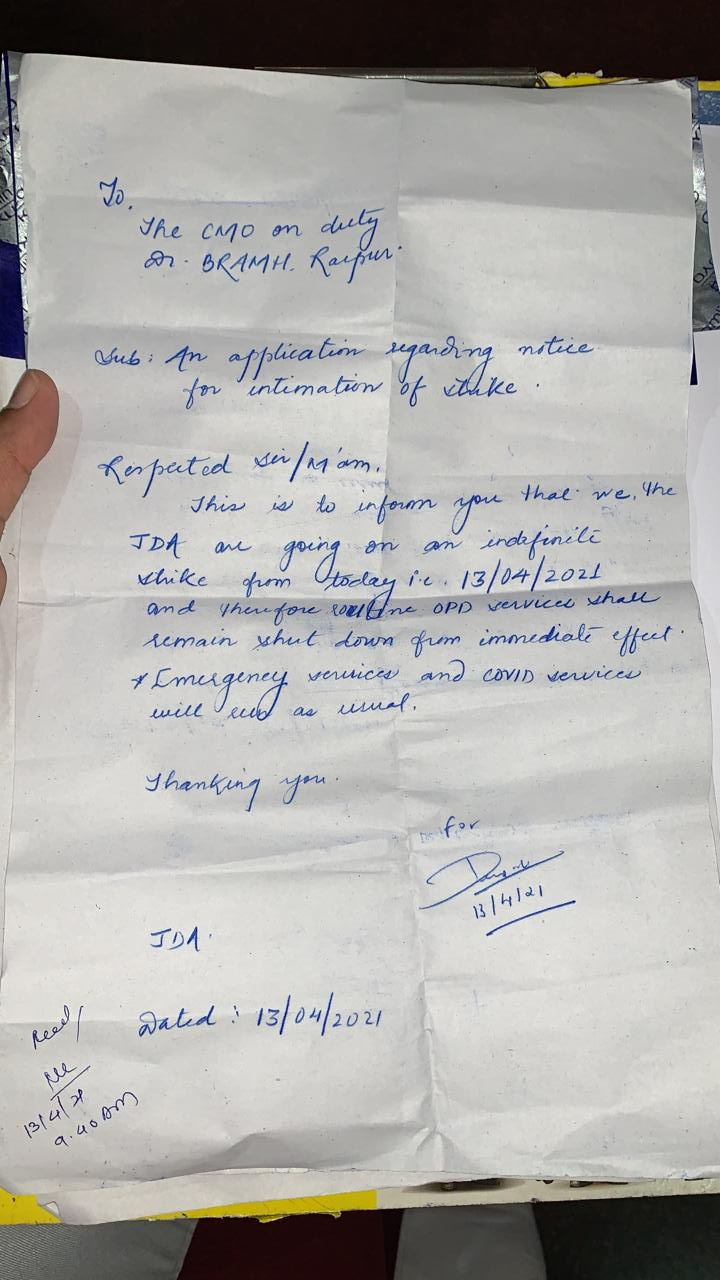 To,
The CMO on duty
Dr. BRAMH. Raipur.
Sub: An application regarding notice
for intimation of strike.
Respected sir/M'am,
This is to inform you that we, the
JDA are going on an indefinite
strike from today i.e. 13/04/2021
and therefore routine OPD services shall
remain shut down from immediate effect.
* Emergency services and COVID services
will run as usual.
Thanking you.
for
13/4/21
JDA.
Dated: 13/04/2021
Recd/
13/4/21
9.40 AM